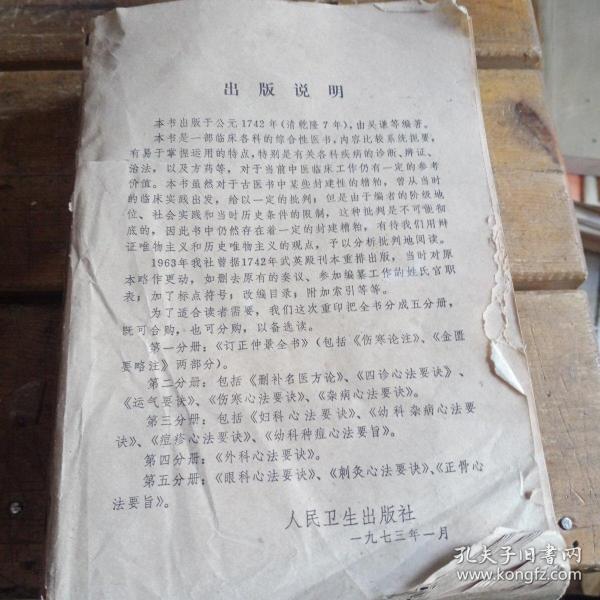 出版说明
本书出版于公元1742年(清乾隆7年),由吴谦等编著。
本书是一部临床各科的综合性医书,内容比较系统扼要,
有易于掌握运用的特点,特别是有关各科疾病的诊断、辨证、
治法,以及方药等,对于当前中医临床工作仍有一定的参考
价值。本书虽然对于古医书中某些封建性的糟粕,曾从当时
的临床实践出发,给以一定的批判;但是由于编者的阶级地
位、社会实践和当时历史条件的限制,这种批判是不可能彻
底的,因此书中仍然存在着一定的封建糟粕,有待我们用辩
证唯物主义和历史唯物主义的观点,予以分析批判地阅读。
1963年我社曾据1742年武英殿刊本重排出版,当时对原
本略作更动,如删去原有的奏议、参加编纂工作的姓氏官职
表;加了标点符号;改编目录;附加索引等等。
为了适合读者需要,我们这次重印把全书分成五分册,
既可合购,也可分购,以备选读。
第一分册:《订正仲景全书》(包括《伤寒论注》、《金匮
要略注》两部分)。
第二分册:包括《删补名医方论》、《四诊心法要诀》、
《运气要诀》、《伤寒心法要诀》、《杂病心法要诀》。
第三分册:包括《妇科心法要诀》、《幼科杂病心法要
诀》、《痘疹心法要诀》、《幼科种痘心法要旨》。
第四分册:《外科心法要诀》。
第五分册:《眼科心法要诀》、《刺灸心法要诀》、《正骨心
法要旨》。
人民卫生出版社
一九七三年一月
孔夫子旧书网
www.kongfz.com